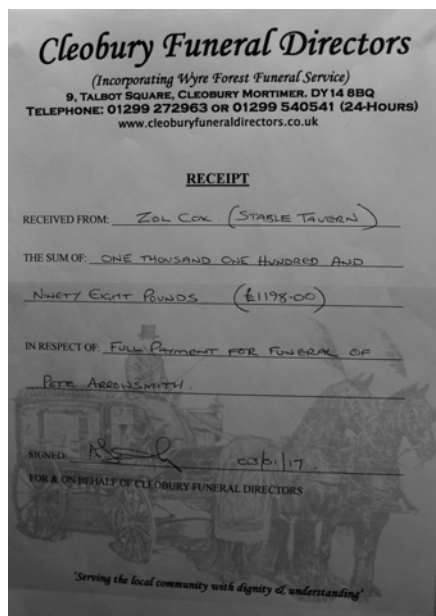 Cleobury Funeral Directors
(Incorporating Wyre Forest Funeral Service)
9, TALBOT SQUARE, CLEOBURY MORTIMER. DY14 8BQ
TELEPHONE: 01299 272963 OR 01299 540541 (24-HOURS)
www.cleoburyfuneraldirectors.co.uk
RECEIPT
RECEIVED FROM: ZOL COX. (STABLE TAVERN)
THE SUM OF: ONE THOUSAND ONE HUNDRED AND
NINETY EIGHT POUNDS (£1198-00)
IN RESPECT OF: FULL PAYMENT FOR FUNERAL OF
PETE ARROWSMITH.
SIGNED: 03/01/17
FOR & ON BEHALF OF CLEOBURY FUNERAL DIRECTORS
'Serving the local community with dignity & understanding'